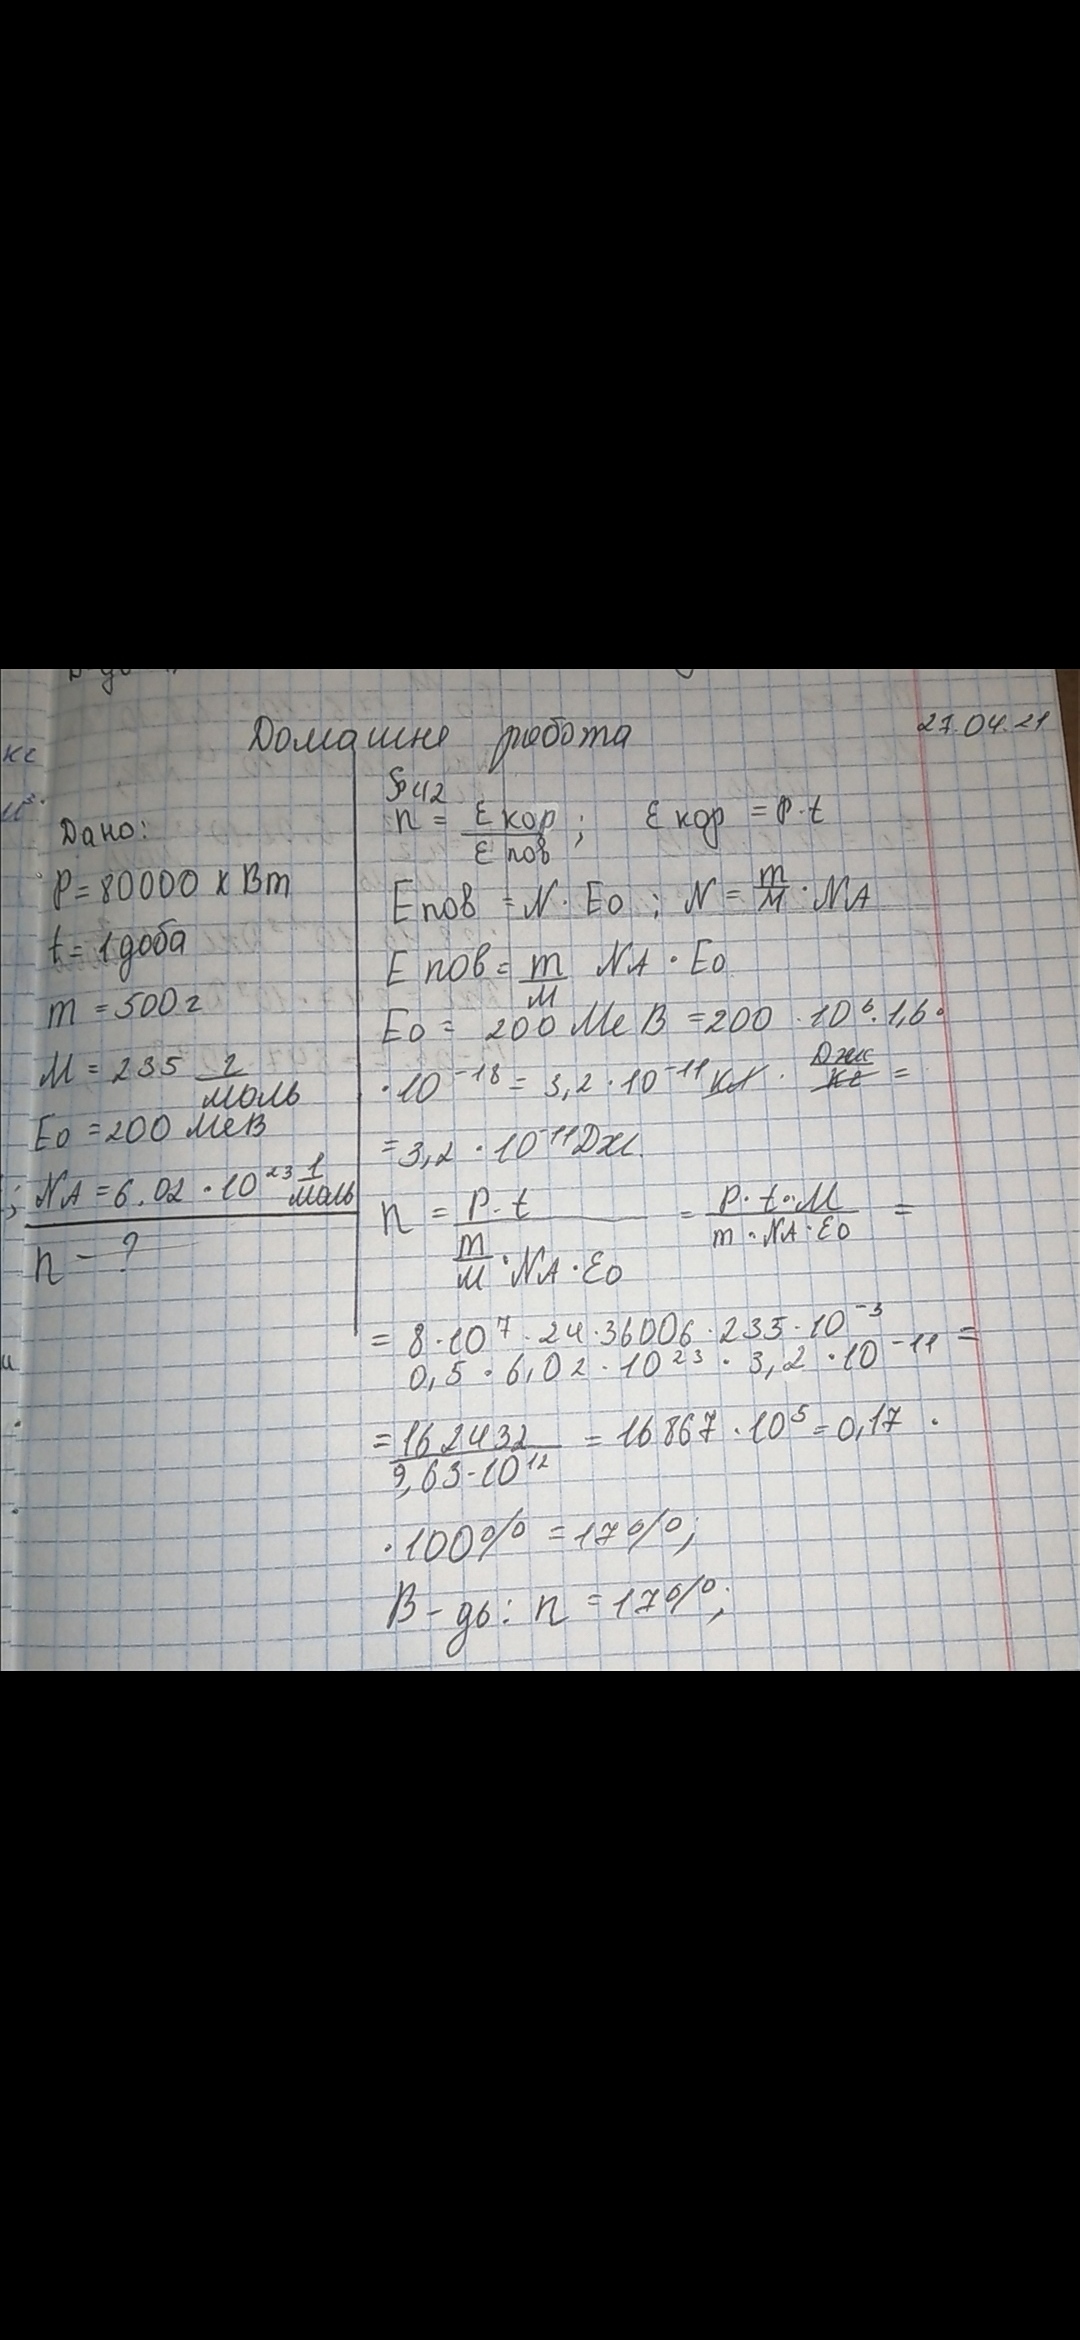 Домашнє робота
27.04.21
кг
Дано:
P = 80000 кВт
t = 1 доба
m = 500 г
M = 235 г/моль
E0 = 200 МеВ
NA = 6.02 · 10^23 1/моль
n - ?
n = Eкор/Eпов ; Eкор = P·t
Eпов = N · E0 ; N = m/M · NA
Eпов = m/M NA · E0
E0 = 200 МеВ = 200 · 10^6 · 1,6 ·
· 10^-18 = 3,2 · 10^-11 · Дж =
= 3,2 · 10^-11 Дж.
n = P·t / (m/M · NA · E0) = P·t·M / (m · NA · E0) =
= 8 · 10^7 · 24 · 3600б · 235 · 10^-3
0,5 · 6,02 · 10^23 · 3,2 · 10^-11 =
= 162432 / 9,63 · 10^12 = 16867 · 10^5 = 0,17 ·
· 100% = 17%;
В-дь: n = 17%;